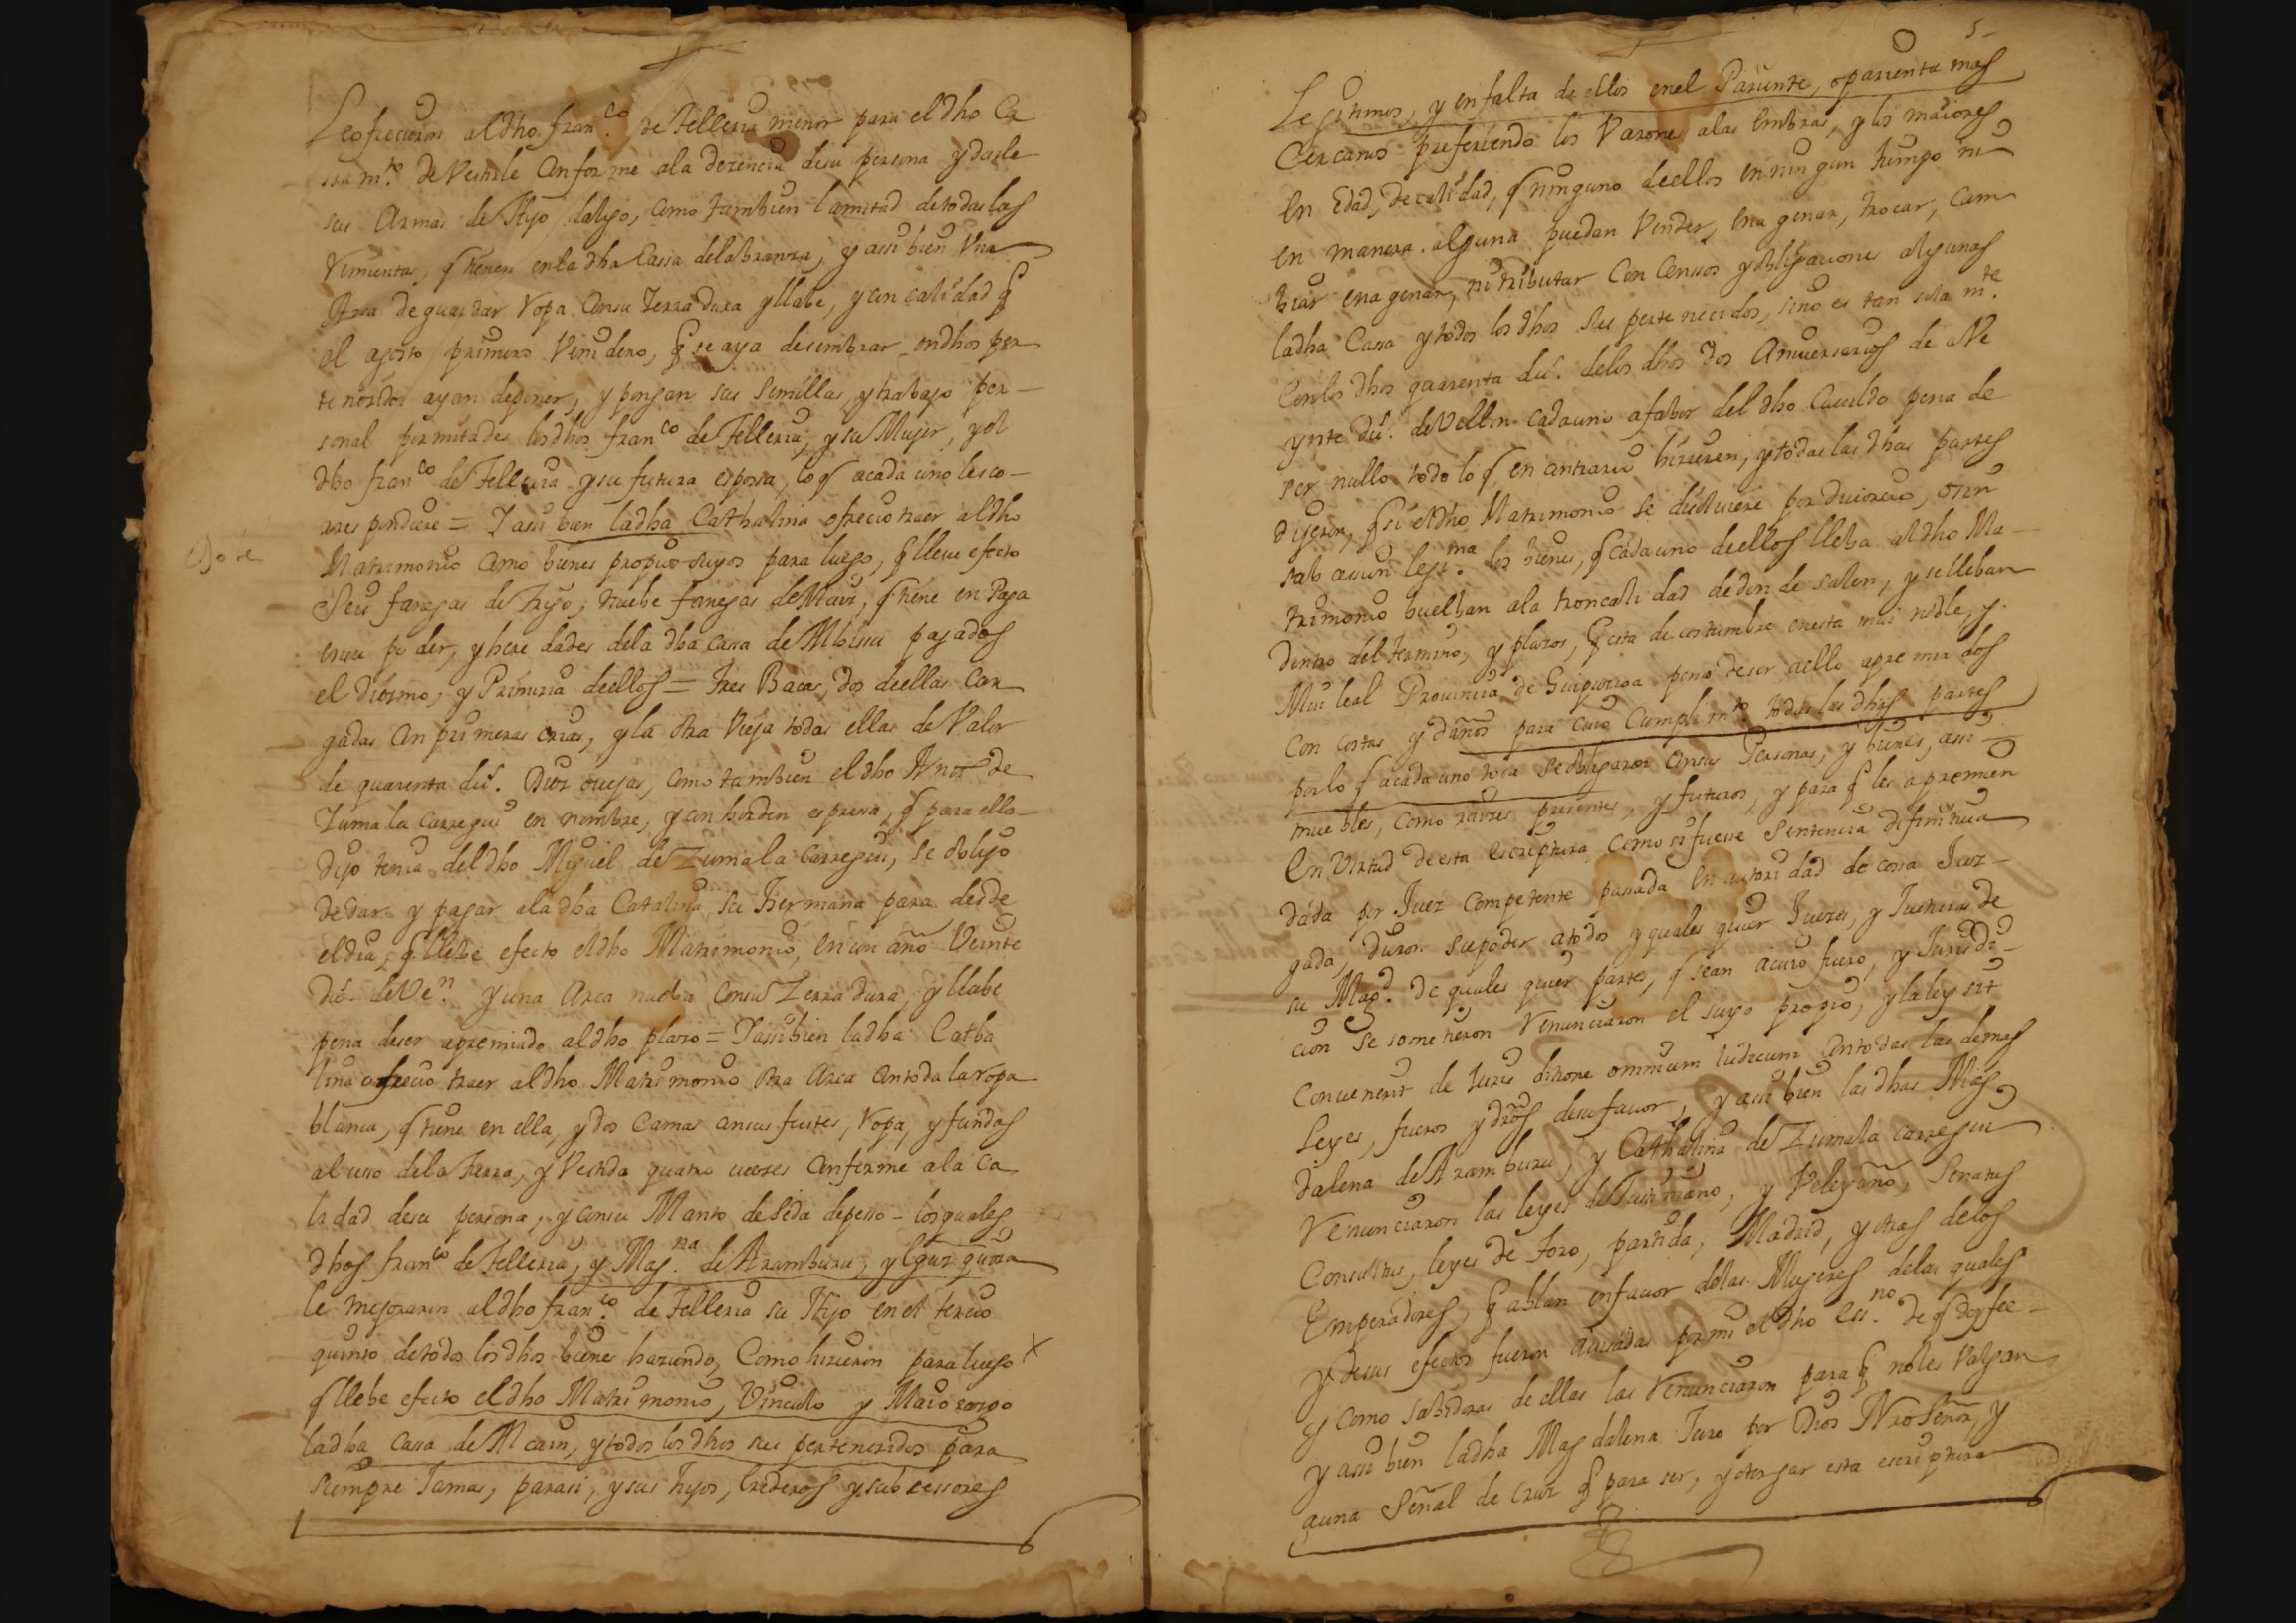 Le ofrecieron al dho fran.co de Telleria menor para el dho Ca
ssam.to de Vestirle conforme ala dezencia desu persona y darle
sus Armas de Hijo dalgo, como tambien la mitad de todas las
que tienen en la dha Cassa de labranza, y assi bien Una
Arca de guardar Ropa con su zerradura y llabe, y con calidad q
al agosto primero Venidero, q se aya desembrar en dhos per
tenezidos ayan deponer, y pongan sus semillas, y trabajo per-
sonal por mitades los dhos fran.co de Telleria, y su Mujer, y el
dho fran.co de Telleria y su futura espossa, lo q acada uno les co-
rrespondiere = Y assi bien la dha Cathalina ofrecio traer al dho
Dote
Matrimonio como bienes propios suyos para luego, q lleue efecto
Seis fanegas de trigo, nuebe fanegas de Maiz, q tiene en
en su poder, y heredades dela dha cassa de Albissu pagados
el Diezmo, y Primicia de ellos = tres Bacas, dos de ellas Car
gadas con primeras crias, y la otra Vieja todas ellas de Valor
de quarenta du.s Diez ovejas, como tambien el dho de
Zumala carregui en nombre, y con horden espressa, q para ello
dijo tenia del dho Miguel de Zumala carregui, se obligo
de dar y pagar ala dha Catalina su Hermana para desde
el dia, q llebe efecto el dho Matrimonio, en un año Veinte
du.s de Ve.n y una Arca nueba con su Zerradura, y llabe
pena deser apremiado al dho plazo = Y assi bien la dha Catha
lina ofrecio traer al dho Matrimonio otra Arca con toda la ropa
blanca, q tiene en ella, y dos Camas con sus fustes, Ropa, y fundas
al usso de la tierra, y Vestida quatro vezes conforme ala ca
lidad desu persona, y con su Manto de Seda de pesso - los quales
dhos fran.co de Telleria, y Mag.na de Aramburu, y Eguzquiza
le mejoraron al dho fran.co de Telleria su Hijo en el tercio
quinto de todos los dhos bienes haziendo, Como hizieron para luego X
q llebe efecto el dho Matrimonio, Vinculo y Maiorazgo
la dha cassa de Alcain, y todos los dhos sus pertenezidos para
siempre Jamas, para si, y sus hijos, herederos y subcessores
5
Legitimos, y en falta de ellos en el Pariente, o parienta mas
Cercanos prefiriendo los Varones alas embras, y los maiores
en Edad, de calidad, q ninguno de ellos en ningun tiempo ni
en manera alguna puedan Vender, enagenar, trocar, cam
biar enagenar, ni tributar con censsos y obligaciones algunas
la dha Cassa y todos los dhos sus pertenecidos, sino es tan sola m.te
con los dhos quarenta du.s delos dhos dos Aniuersarios de Ve
ynte du.s de Vellon cada uno a fabor del dho Cauildo pena de
ser nullo todo lo q en contrario hizieren, y todas las dhas partes
dijeron, q si el dho Matrimonio se disoluiere por diuorcio, o sin
subcession legi.ma los bienes, q cada uno de ellos lleba al dho Ma-
trimonio buelban ala troncalidad de don de salen, y se lleban
dentro del termino, y plazos, q esta de costumbre en esta mui noble, y
Mui leal Prouincia de Guipuzcoa pena deser aello apremiados
Con costas y daños para cuio Cumplim.to todas las dhas partes
por lo q acada uno toca se obligaron con sus Personas, y bienes, assi
muebles, como raizes presentes, y futuros, y para q les apremien
En Virtud de esta escriptura como si fuesse Sentencia difinitiua
dada por Juez competente passada en autoridad de cossa Juz-
gada, dieron su poder a todos y quales quier Juezes, y Justicias de
su Mag.d de quales quier partes, q sean acuio fuero, y Jurisdi-
cion se sometieron Renunciaron el suyo propio, y la ley sit
Convenerit de Jurisditione omnium iudicum con todas las demas
Leyes, fueros y dros desu fauor, y assi bien las dhas Mag
dalena de Aramburu, y Cathalina de Zumala carregui
Renunciaron las leyes de Justiniano, y Veleyano, Senatus
Consultus, leyes de Toro, partida, Madrid, y otras delos
Emperadores, q ablan en fauor delas Mugeres delas quales
y desus efectos fueron auisadas por mi el dho ess.no de q doy fee-
y como sabidoras de ellas las Renunciaron para q no les Valgan
y assi bien la dha Magdalena Juro por Dios Nro Señor, y
a una Señal de cruz q para ser, y otorgar esta escriptura